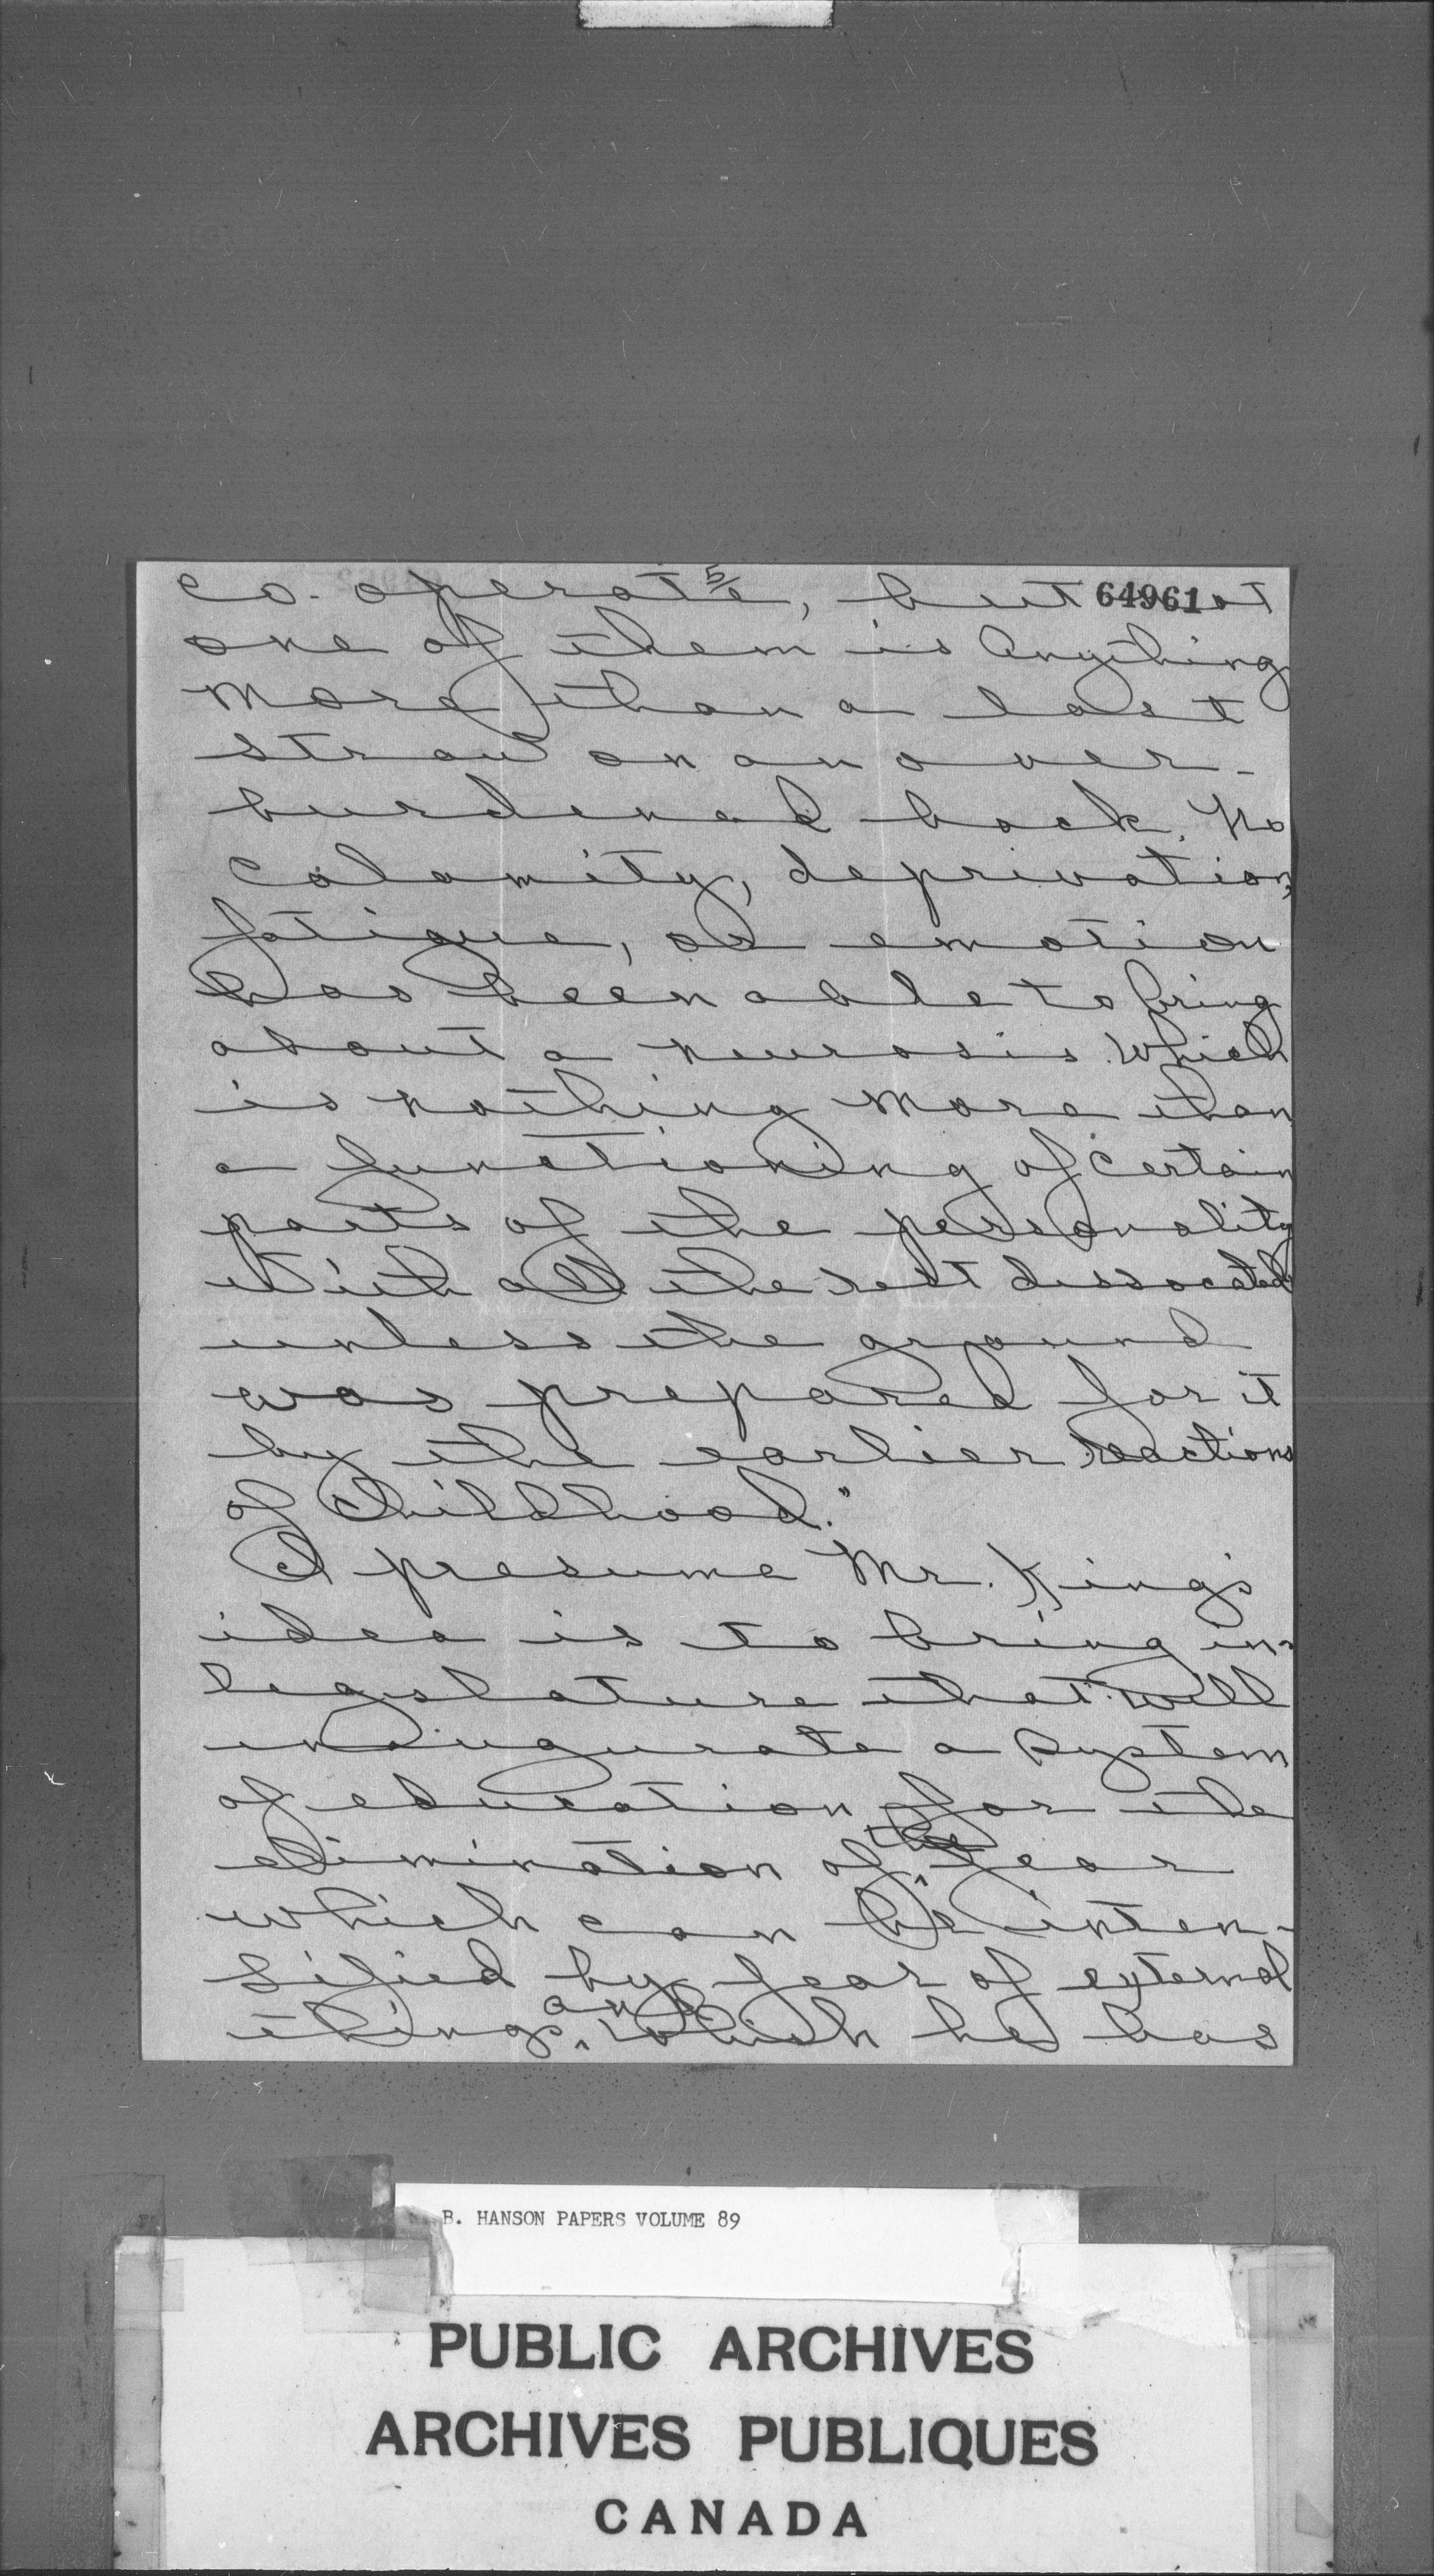 5/
64961
co-operate, but not
one of them is anything
more than a last
straw on an over-
burdened back. No
calamity, deprivation,
fatigue, or emotion
has been able to bring
about a neurosis which
is nothing more than
a functioning of certain
parts of the personality
with all the rest dissocated
unless the ground
was prepared for it
by the earlier reactions
of Childhood."
I presume Mr. King's
idea is to bring in
legislature that will
inaugurate a system
of education for the
elimination of the fear
which can be inten-
sified by fear of external
things, and which he has
B. HANSON PAPERS VOLUME 89
PUBLIC ARCHIVES
ARCHIVES PUBLIQUES
CANADA